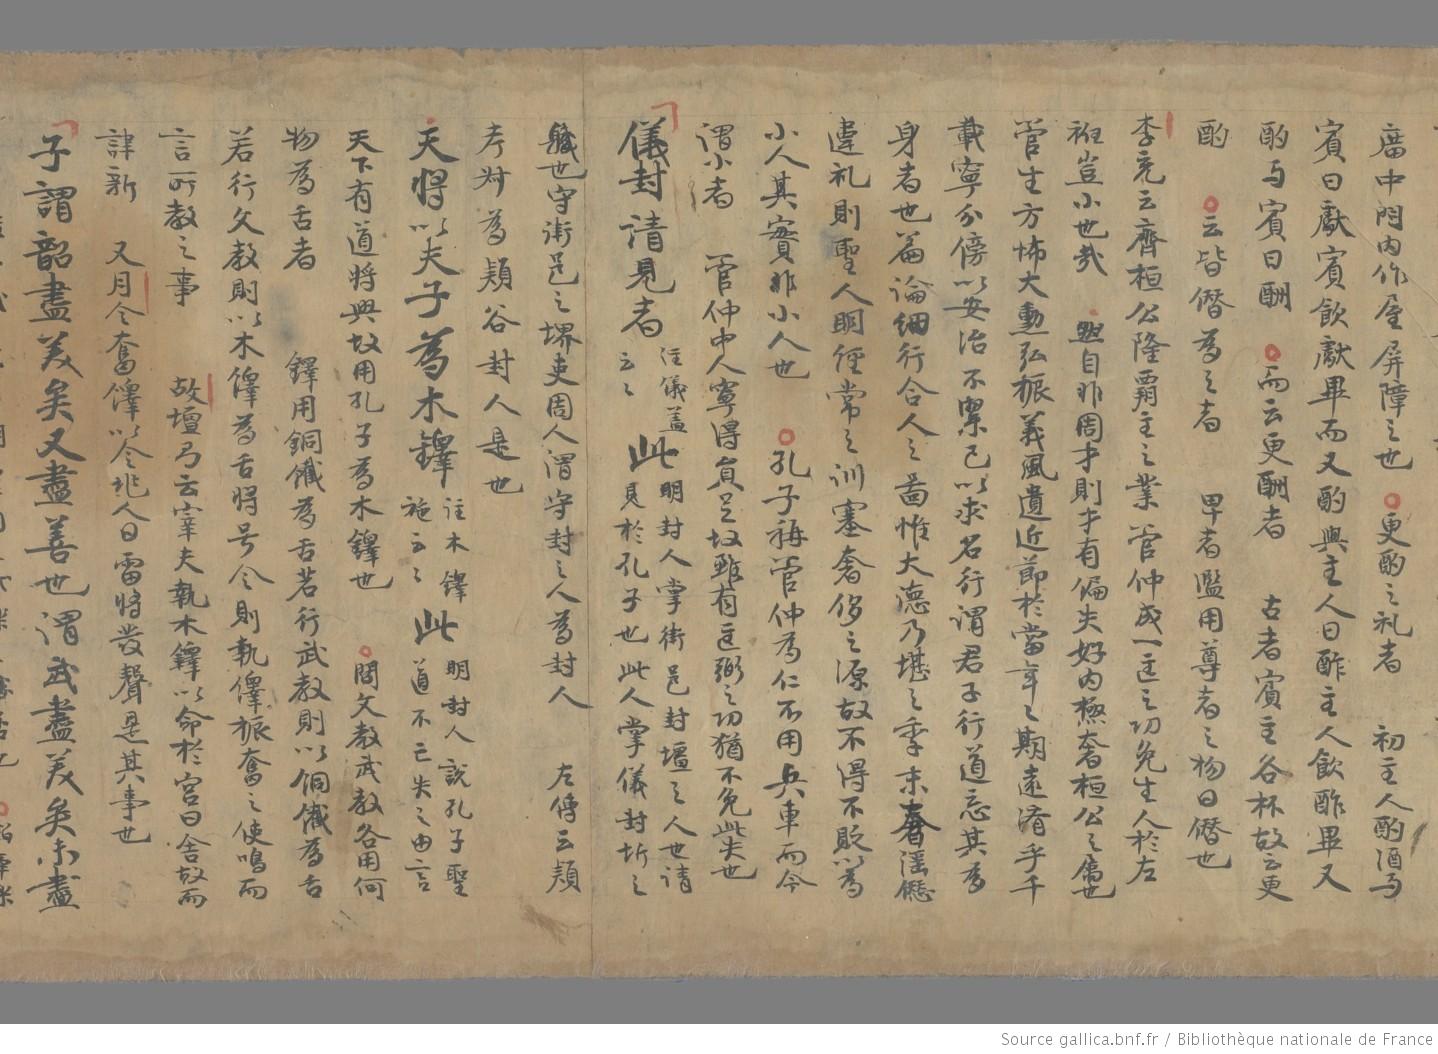 廣中門內作屋屏障之也 更酌之礼者 初主人酌酒与
賓曰獻賓飲獻畢而又酌與主人曰酢主人飲酢畢又
酌与賓曰酬 而云更酬者 古者賓主各杯故云更
酌 云皆僭為之者 卑者濫用尊者之物曰僭也
李充云齊桓公隆霸主之業管仲成一匡之功免生人於左
衽豈小也哉 然自非周才則才有偏失好內極奢桓公之病也
管生方恢大勳弘振義風遺近節於當年之期遠濟乎千
載寧分傍以要治不潔己以求名行謂君子行道忘其為
身者也篇論細行合人之啚惟大德乃堪之季末奢淫僭
違礼則聖人明經常之訓塞奢侈之源故不得不貶以為
小人其實非小人也 孔子稱管仲為仁不用兵車而今
謂小者 管仲中人寧得員足故雖有匡弼之功猶不免此失也
儀封請見者 注儀蓋云々 此明封人掌衛邑封壇之人也請見於孔子也此人掌儀封圻之
職也守衛邑之堺吏周人謂守封之人為封人 左傳云穎
考叔為穎谷封人是也
天將以夫子為木鐸 注木鐸施云々 此明封人說孔子聖道不亡失之由言
天下有道將興故用孔子為木鐸也 問文教武教各用何
物為舌者 鐸用銅鐵為舌若行武教則以銅鐵為舌
若行文教則以木鐸為舌將号令則執鐸振奮之使鳴而
言所教之事 故壇弓云宰夫執木鐸以命於宮曰舍故而
諱新 又月令奮鐸以令兆人曰雷將發聲是其事也
子謂韶盡美矣又盡善也謂武盡美矣未盡